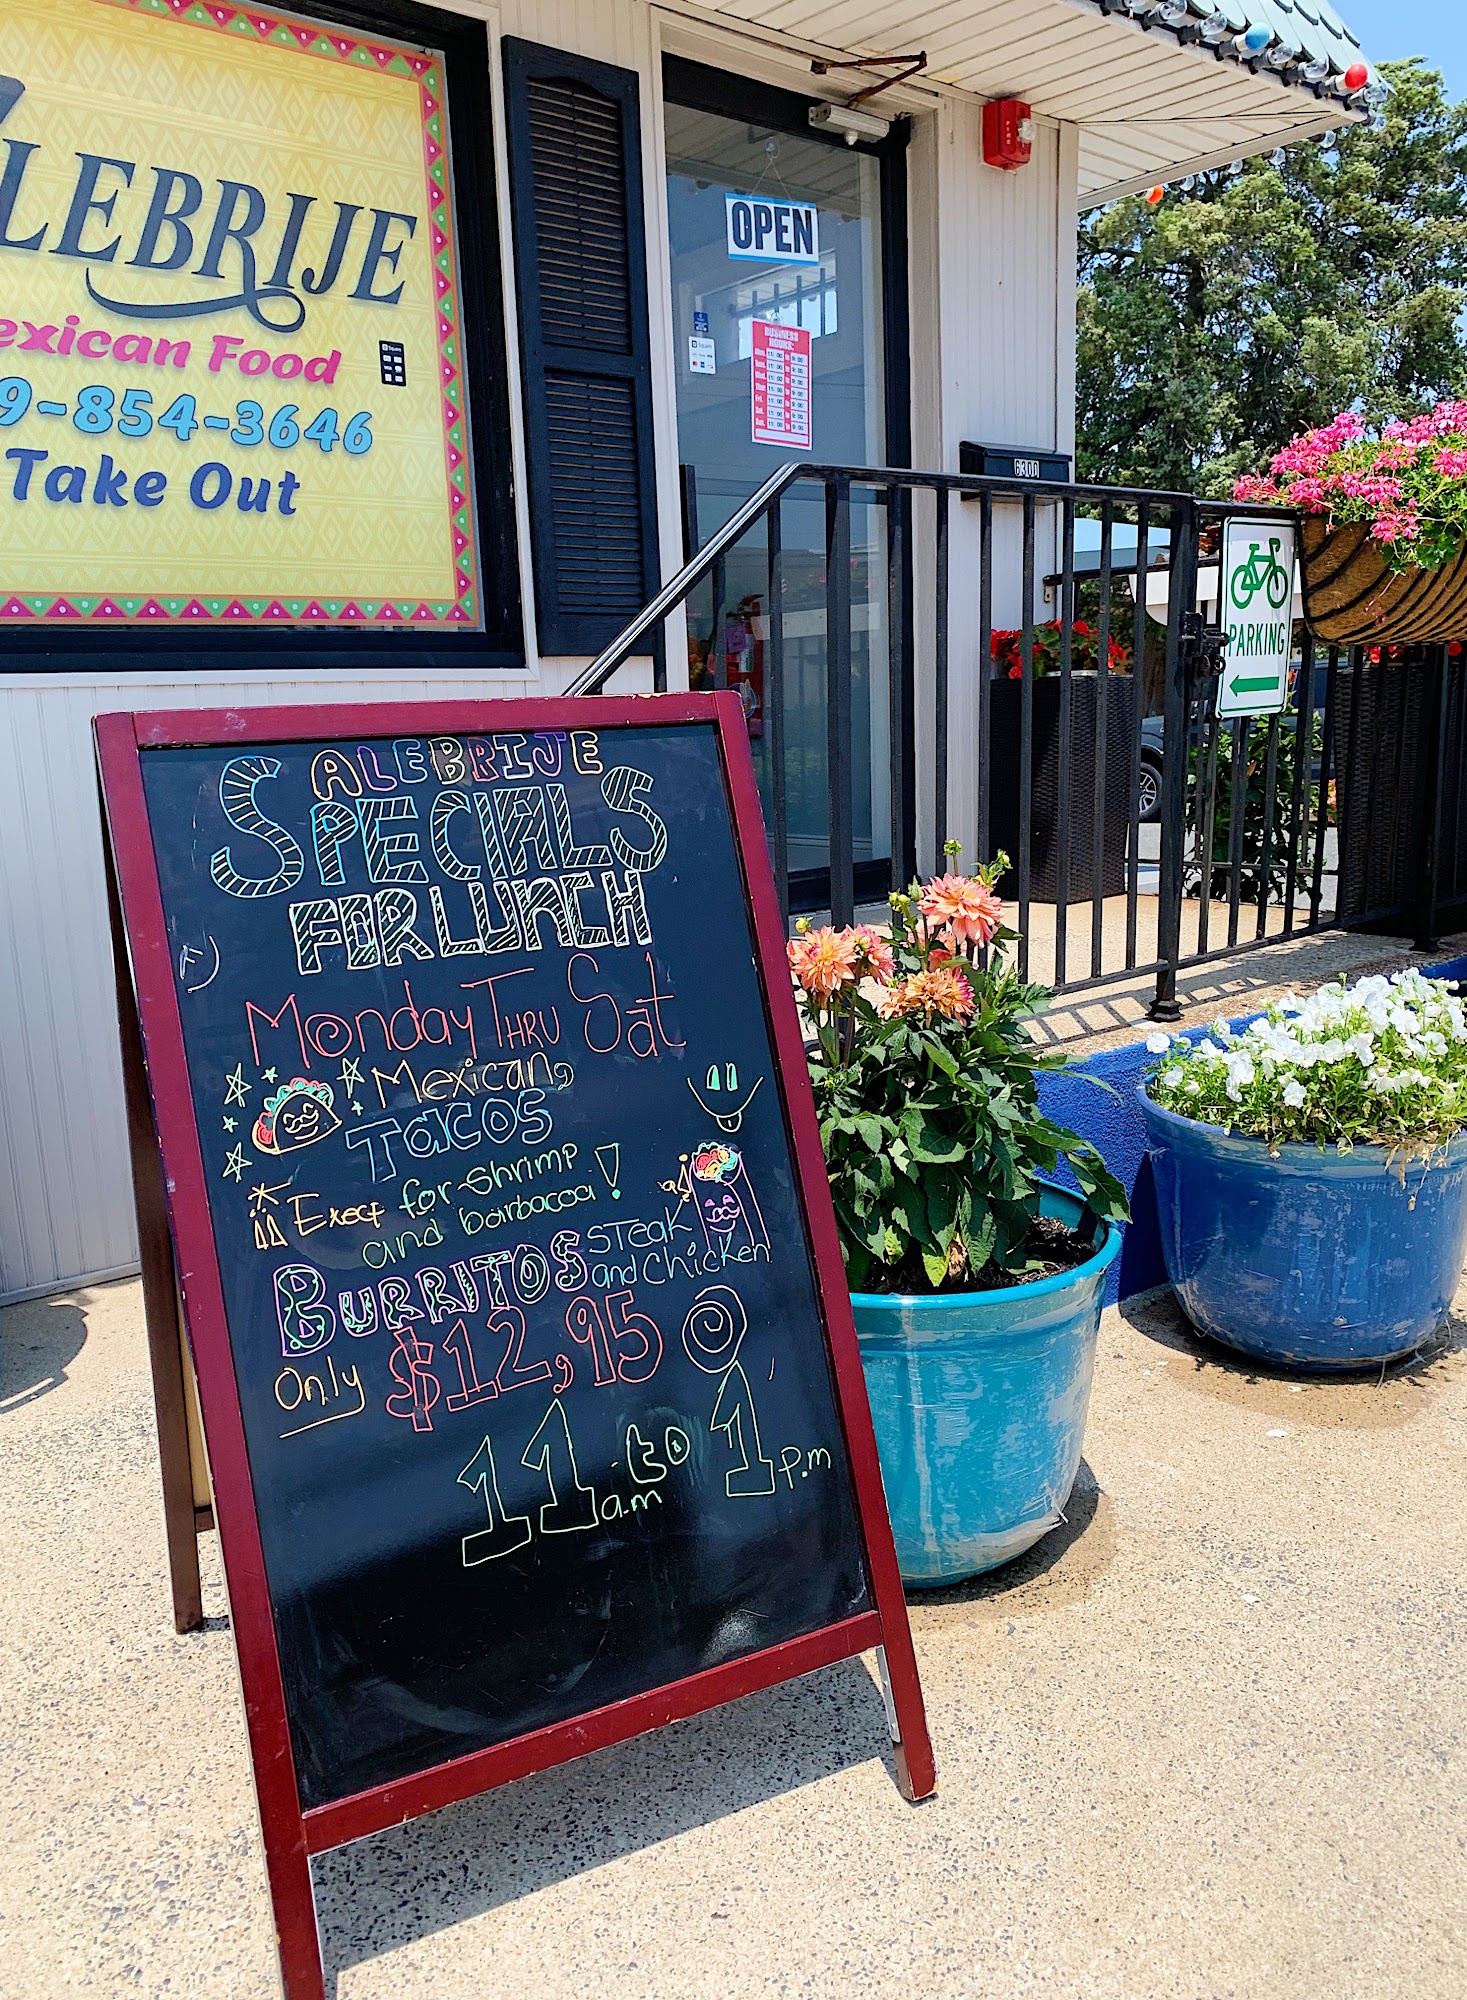 ALEBRIJE
exican Food
9-854-3646
Take Out
OPEN
BUSINESS
HOURS:
Mon. 11:00 to 9:00
FIRE
6300
PARKING
ALEBRIJE
SPECIALS
FOR LUNCH
Monday THRU Sat
Mexican
TACOS
Exect for shrimp
and barbacoa!
BURRITOS steak
and chicken
Only $12,95
11 a.m to 1 p.m